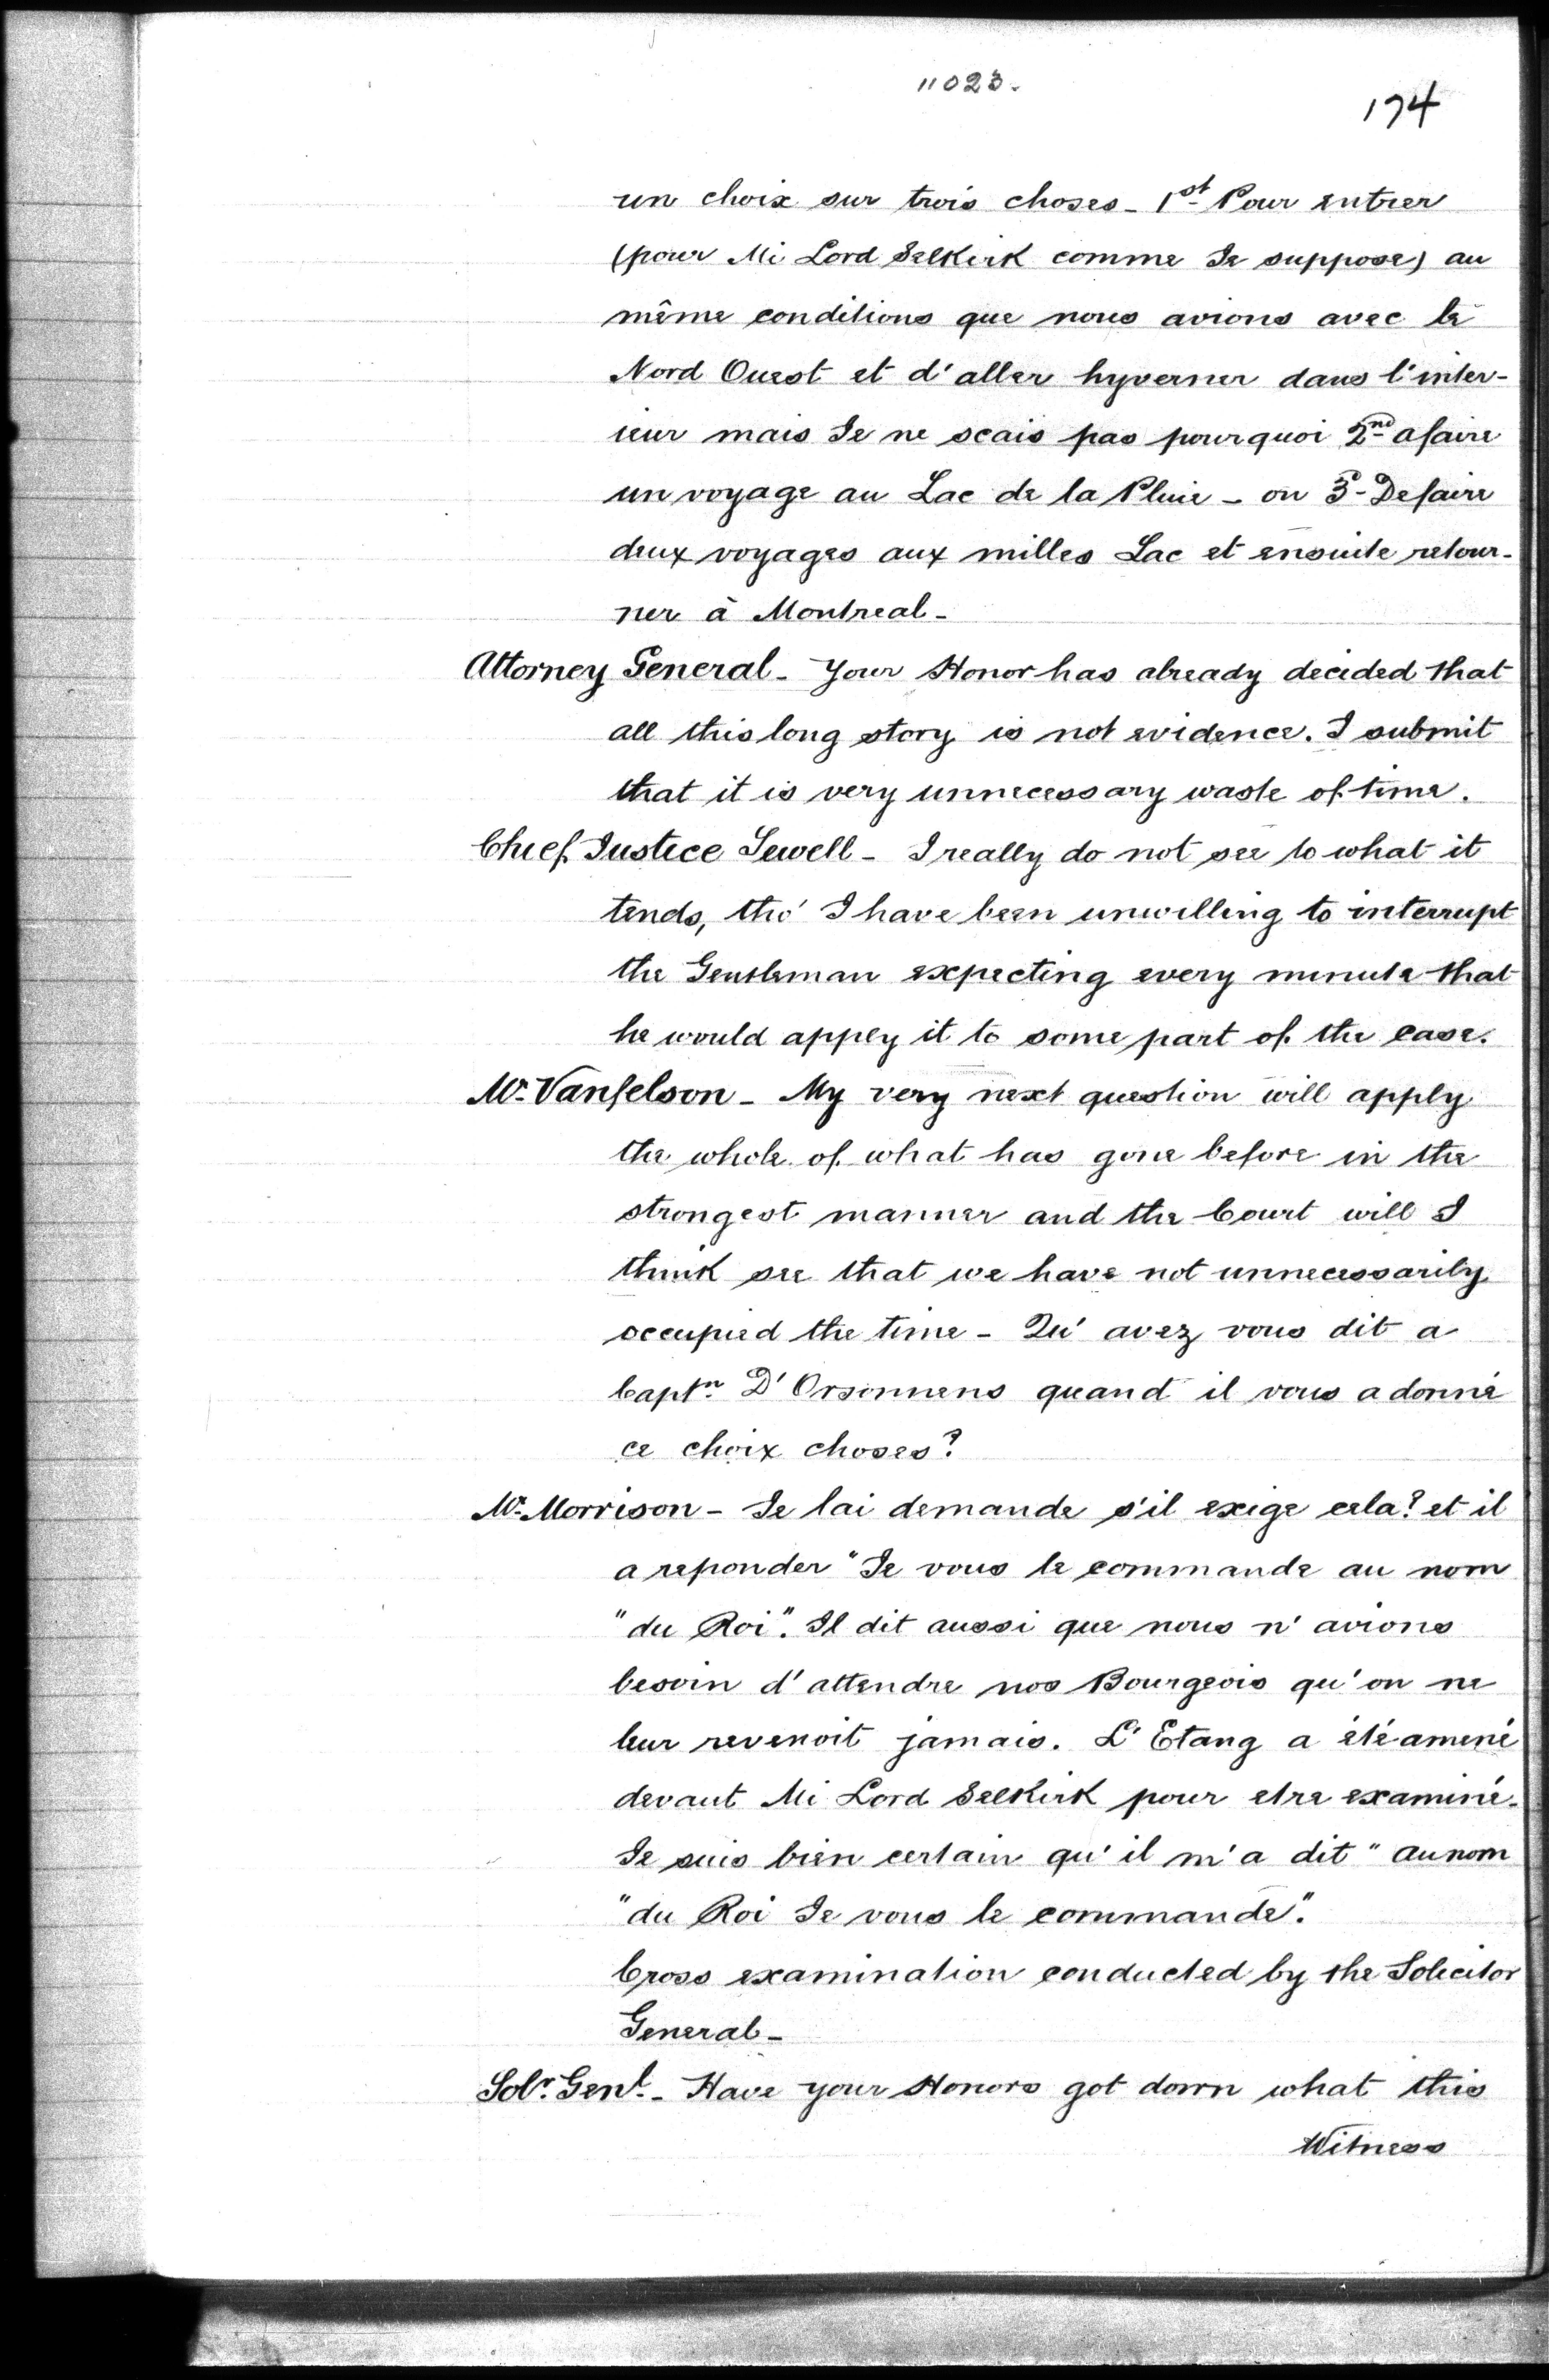 11023.
174
un choix sur trois choses - 1st Pour entrer
(pour Mi Lord Selkirk comme Je suppose) au
même conditions que nous avions avec le
Nord Ouest et d'aller hyverner dans l'inter-
ieur mais Je ne scais pas pourquoi 2nd a faire
un voyage au Lac de la Pluie - ou 3º- De faire
deux voyages aux milles Lac et ensuite retour-
ner à Montreal -
Attorney General - Your Honor has already decided that
all this long story is not evidence. I submit
that it is very unnecessary waste of time.
Chief Justice Sewell - I really do not see to what it
tends, tho' I have been unwilling to interrupt
the Gentleman expecting every minute that
he would apply it to some part of the case.
Mr. Vanfelson - My very next question will apply
the whole of what has gone before in the
strongest manner and the Court will I
think see that we have not unnecessarily
occupied the time - Qu' avez vous dit a
Captn. D'Orsonnens quand il vous a donné
ce choix choses?
Mr. Morrison - Je lai demande s'il exige cela? et il
a reponder "Je vous le commande au nom
"du Roi". Il dit aussi que nous n' avions
besoin d' attendre nos Bourgeois qu' on ne
leur revenoit jamais. L' Etang a été amené
devant Mi Lord Selkirk pour etre examiné.
Je suis bien certain qu' il m' a dit "au nom
"du Roi Je vous le commande".
Cross examination conducted by the Solicitor
General -
Solr. Genl. - Have your Honors got down what this
Witness